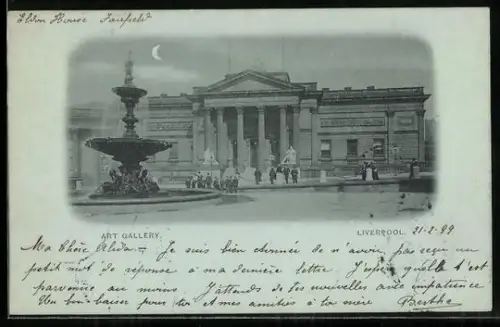 Eldon House Fairfield
ART GALLERY.
LIVERPOOL. 21-2-99
Ma Chère Alida — Je suis bien étonnée de n'avoir pas reçu un
petit mot de réponse à ma dernière lettre. J'espère qu'elle t'est
parvenue au moins J'attends de tes nouvelles avec impatience
Un bon baiser pour toi et mes amitiés à ta mère Berthe